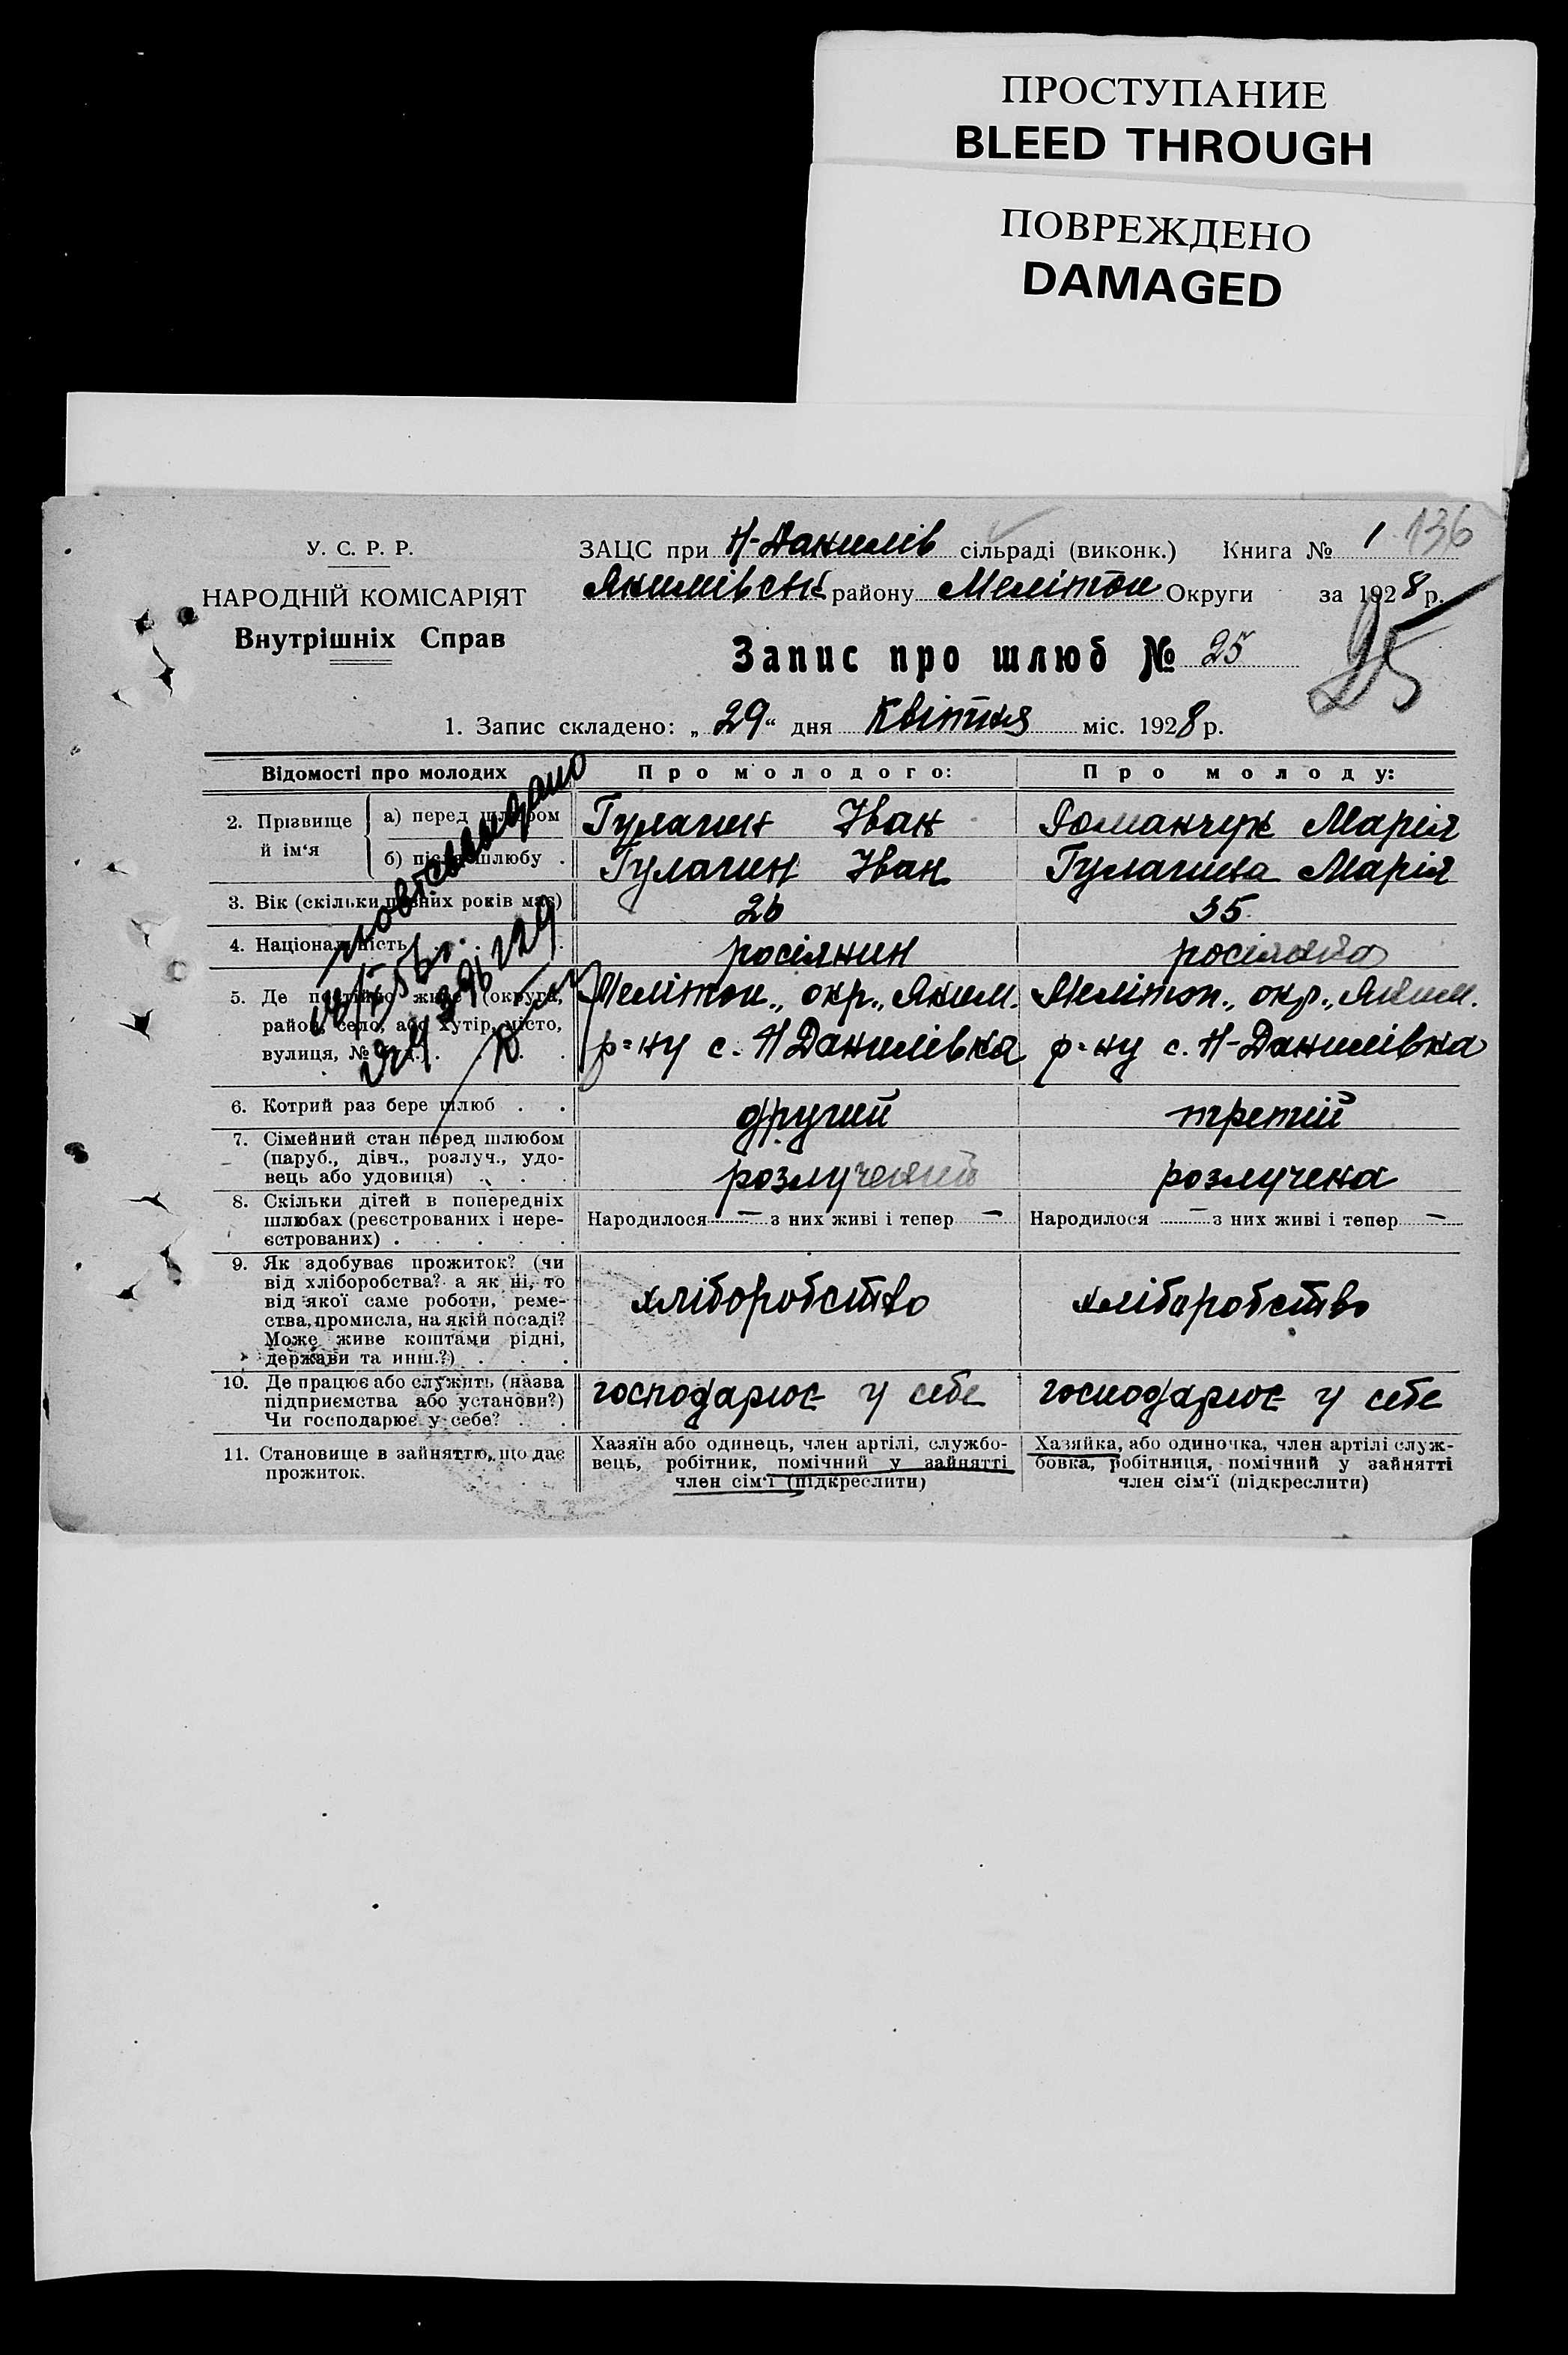 ПРОСТУПАНИЕ
BLEED THROUGH
ПОВРЕЖДЕНО
DAMAGED
У. С. Р. Р.
НАРОДНІЙ КОМІСАРІЯТ
Внутрішніх Справ
ЗАЦС при Н-Данилів сільраді (виконк.) Книга № 1 136
Якимівськ району Мелітоп Округи за 1928 р.
Запис про шлюб № 25
25
1. Запис складено: „29“ дня Квітня міс. 1928 р.
Відомості про молодих Про молодого: Про молоду:
2. Прізвище й ім‘я
а) перед шлюбом Гулагин Іван Романчук Марія
б) після шлюбу . Гулагин Іван Гулагина Марія
3. Вік (скільки повних років має) 26 35
4. Національність росіянин росіянка
5. Де постійно живе (округа, район, село, або хутір, місто, вулиця, №
Мелітоп., окр., Яким.
р-ну с. Н Данилівка
Мелітоп., окр., Яким.
р-ну с. Н-Данилівка
повт. св. выдано
6. Котрий раз бере шлюб . . другий третій
7. Сімейний стан перед шлюбом
(паруб., дівч., розлуч., удо-
вець або удовиця) . . . розлучений розлучена
8. Скільки дітей в попередніх
шлюбах (реєстрованих і нере-
єстрованих) . . . . .
Народилося — з них живі і тепер — Народилося — з них живі і тепер —
9. Як здобуває прожиток? (чи
від хліборобства? а як ні, то
від якої саме роботи, реме-
ства, промисла, на якій посаді?
Може живе коштами рідні,
держави та инш.?) . . .
хліборобство хліборобство
10. Де працює або служить (назва
підприємства або установи?)
Чи господарює у себе? . .
господарює у себе господарює у себе
11. Становище в зайняттю, що дає
прожиток.
Хазяїн або одинець, член артілі, службо-
вець, робітник, помічний у зайнятті
член сім‘ї (підкреслити)
Хазяйка, або одиночка, член артілі служ-
бовка, робітниця, помічний у зайнятті
член сім‘ї (підкреслити)